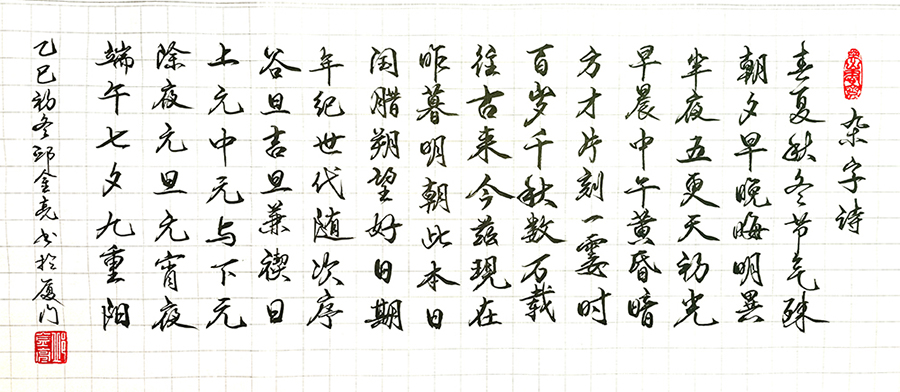 杂字诗
春夏秋冬节气殊
朝夕早晚晦明異
半夜五更天初光
早晨中午黄昏暗
方才片刻一霎时
百岁千秋数万载
往古来今兹现在
昨暮明朝此本日
闰腊朔望好日期
年纪世代随次序
谷旦吉旦兼禊日
上元中元与下元
除夜元旦元宵夜
端午七夕九重阳
乙巳初冬邱金亮书於厦门